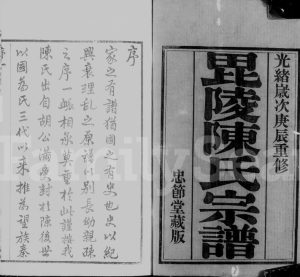 光緒歲次庚辰重修
毘陵陳氏宗譜
忠節堂藏版
序
家之有譜猶國之有史也史以紀
興衰理乱之原譜以别長幼親疎
之序一脈相承莫重於此謹按我
陳氏出自胡公滿受封於陳後世
以國為氏三代以来推為望族秦